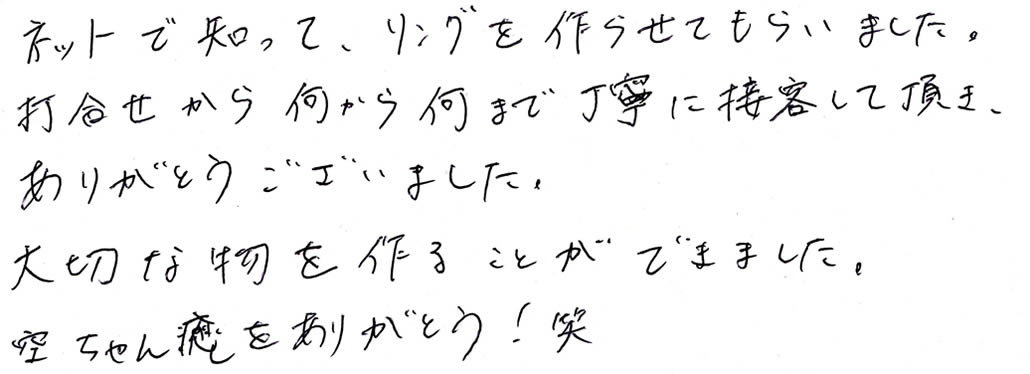 ネットで知って、リングを作らせてもらいました。
打合せから何から何まで丁寧に接客して頂き、
ありがとうございました。
大切な物を作ることができました。
空ちゃん癒しをありがとう！笑